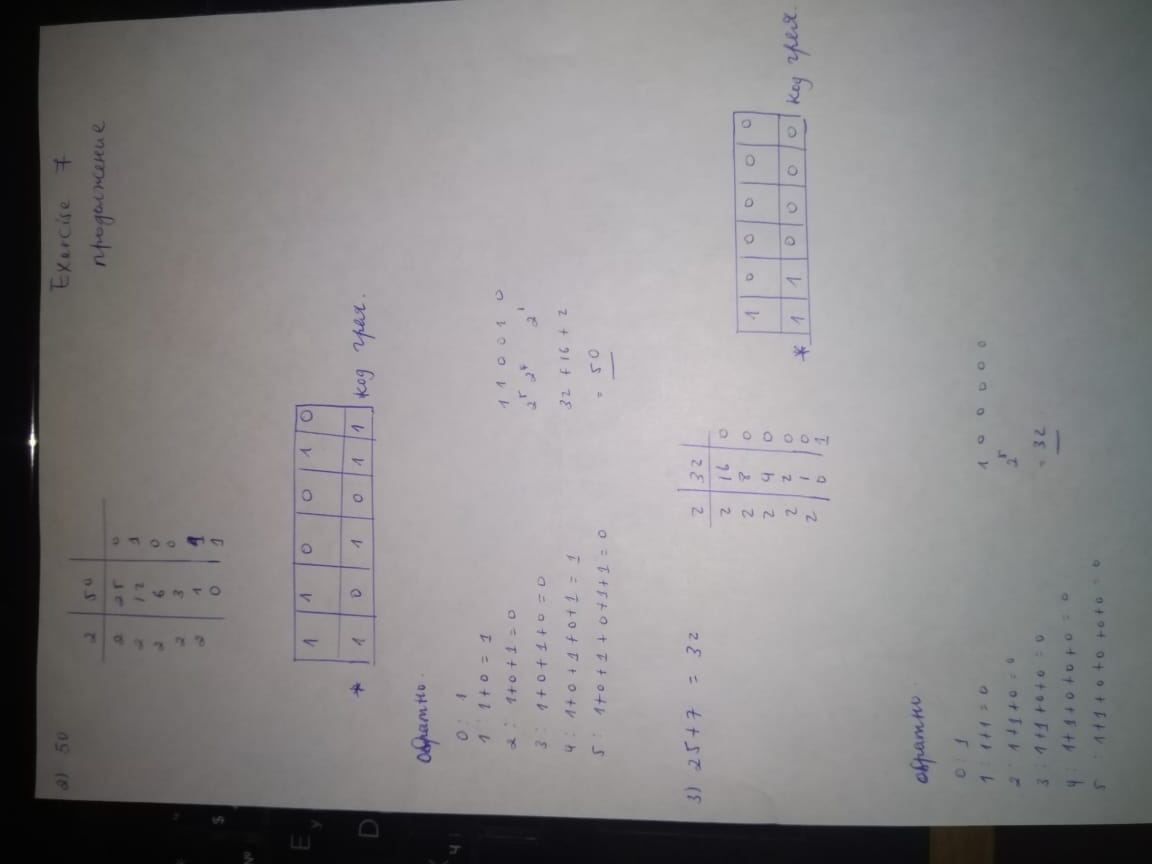 Exercise 7
продолжение
2) 50
2 | 50
2 | 25 | 0
2 | 12 | 1
2 | 6 | 0
2 | 3 | 0
2 | 1 | 1
0 | 1
1 | 1 | 0 | 0 | 1 | 0
* 1 | 0 | 1 | 0 | 1 | 1 код грея.
обратно.
0: 1
1: 1+0=1
2: 1+0+1=0
3: 1+0+1+0=0
4: 1+0+1+0+1=1
5: 1+0+1+0+1+1=0
1 1 0 0 1 0
2⁵ 2⁴ 2¹
32+16+2
= 50
3) 25+7 = 32
2 | 32
2 | 16 | 0
2 | 8 | 0
2 | 4 | 0
2 | 2 | 0
2 | 1 | 0
0 | 1
1 | 0 | 0 | 0 | 0 | 0
* 1 | 1 | 0 | 0 | 0 | 0 код грея.
обратно
0: 1
1: 1+1=0
2: 1+1+0=0
3: 1+1+0+0=0
4: 1+1+0+0+0=0
5: 1+1+0+0+0+0=0
1 0 0 0 0 0
2⁵
= 32
$
E у
D
Ч